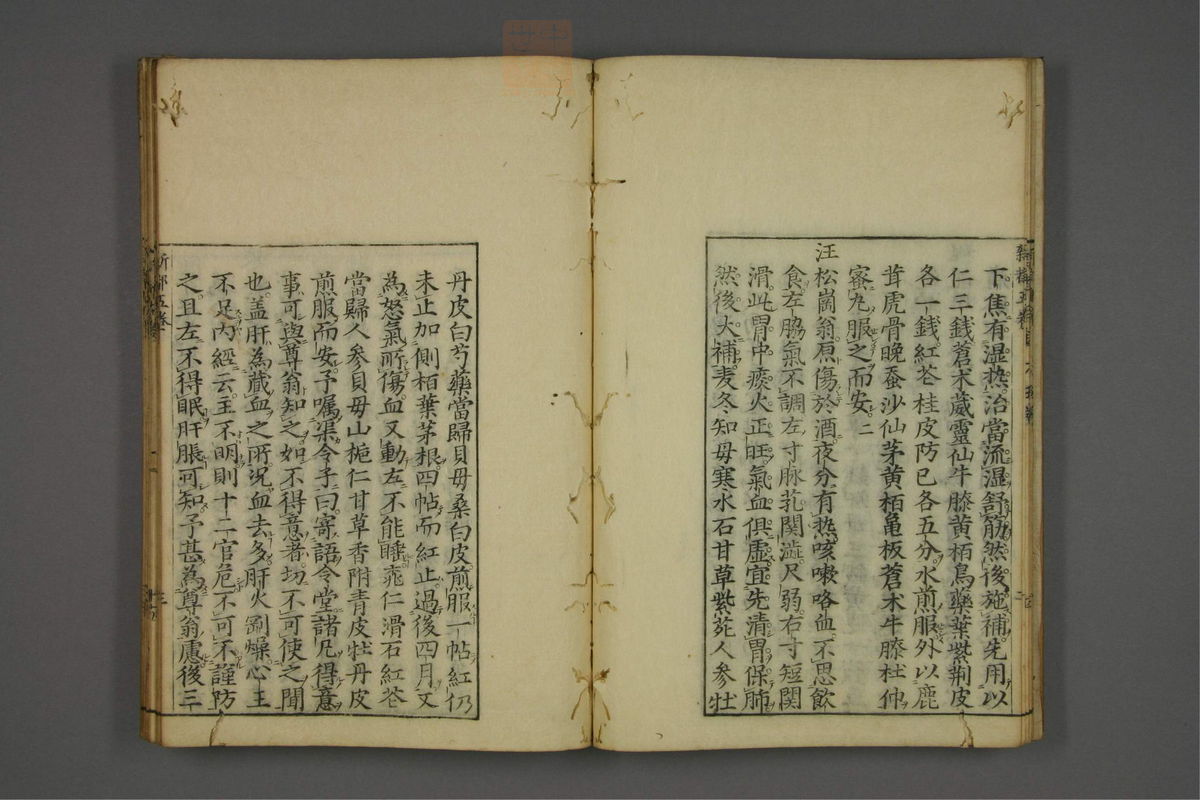 下焦有湿热治當流湿舒筋然後施補先用以
仁三錢蒼术葳靈仙牛膝黄栢烏藥葉紫荆皮
各一錢紅花桂皮防已各五分水煎服外以鹿
茸虎骨晚蚕沙仙茅黄栢亀板蒼术牛膝杜仲
蜜丸服之而安二
汪松崗翁原傷於酒夜分有热咳嗽咯血不思飲
食左脇氣不調左寸脉芤関澁尺弱右寸短関
滑此胃中痰火正旺氣血俱虚宜先清胃保肺
然後大補麦冬知母寒水石甘草紫菀人参牡
丹皮白芍藥當歸貝母桑白皮煎服一帖紅仍
未止加側栢葉茅根四帖而紅止過後四月又
為怒氣所傷血又動左不能睡苡仁滑石紅花
當歸人参貝母山栀仁甘草香附青皮牡丹皮
煎服而安予嘱渠令子曰寄語令堂諸凡得意
事可與尊翁知之如不得意者切不可使之聞
也盖肝為蔵血之所况血去多肝火易燥心主
不足内經云主不明則十二官危不可不謹防
之且左不得眠肝脹可知予甚為尊翁慮後三